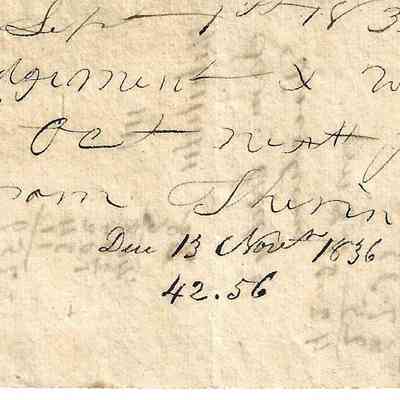 Sept 1st 183
dgement & w
Oct next
rom Sherin
Due 13 Novr 1836
42.56